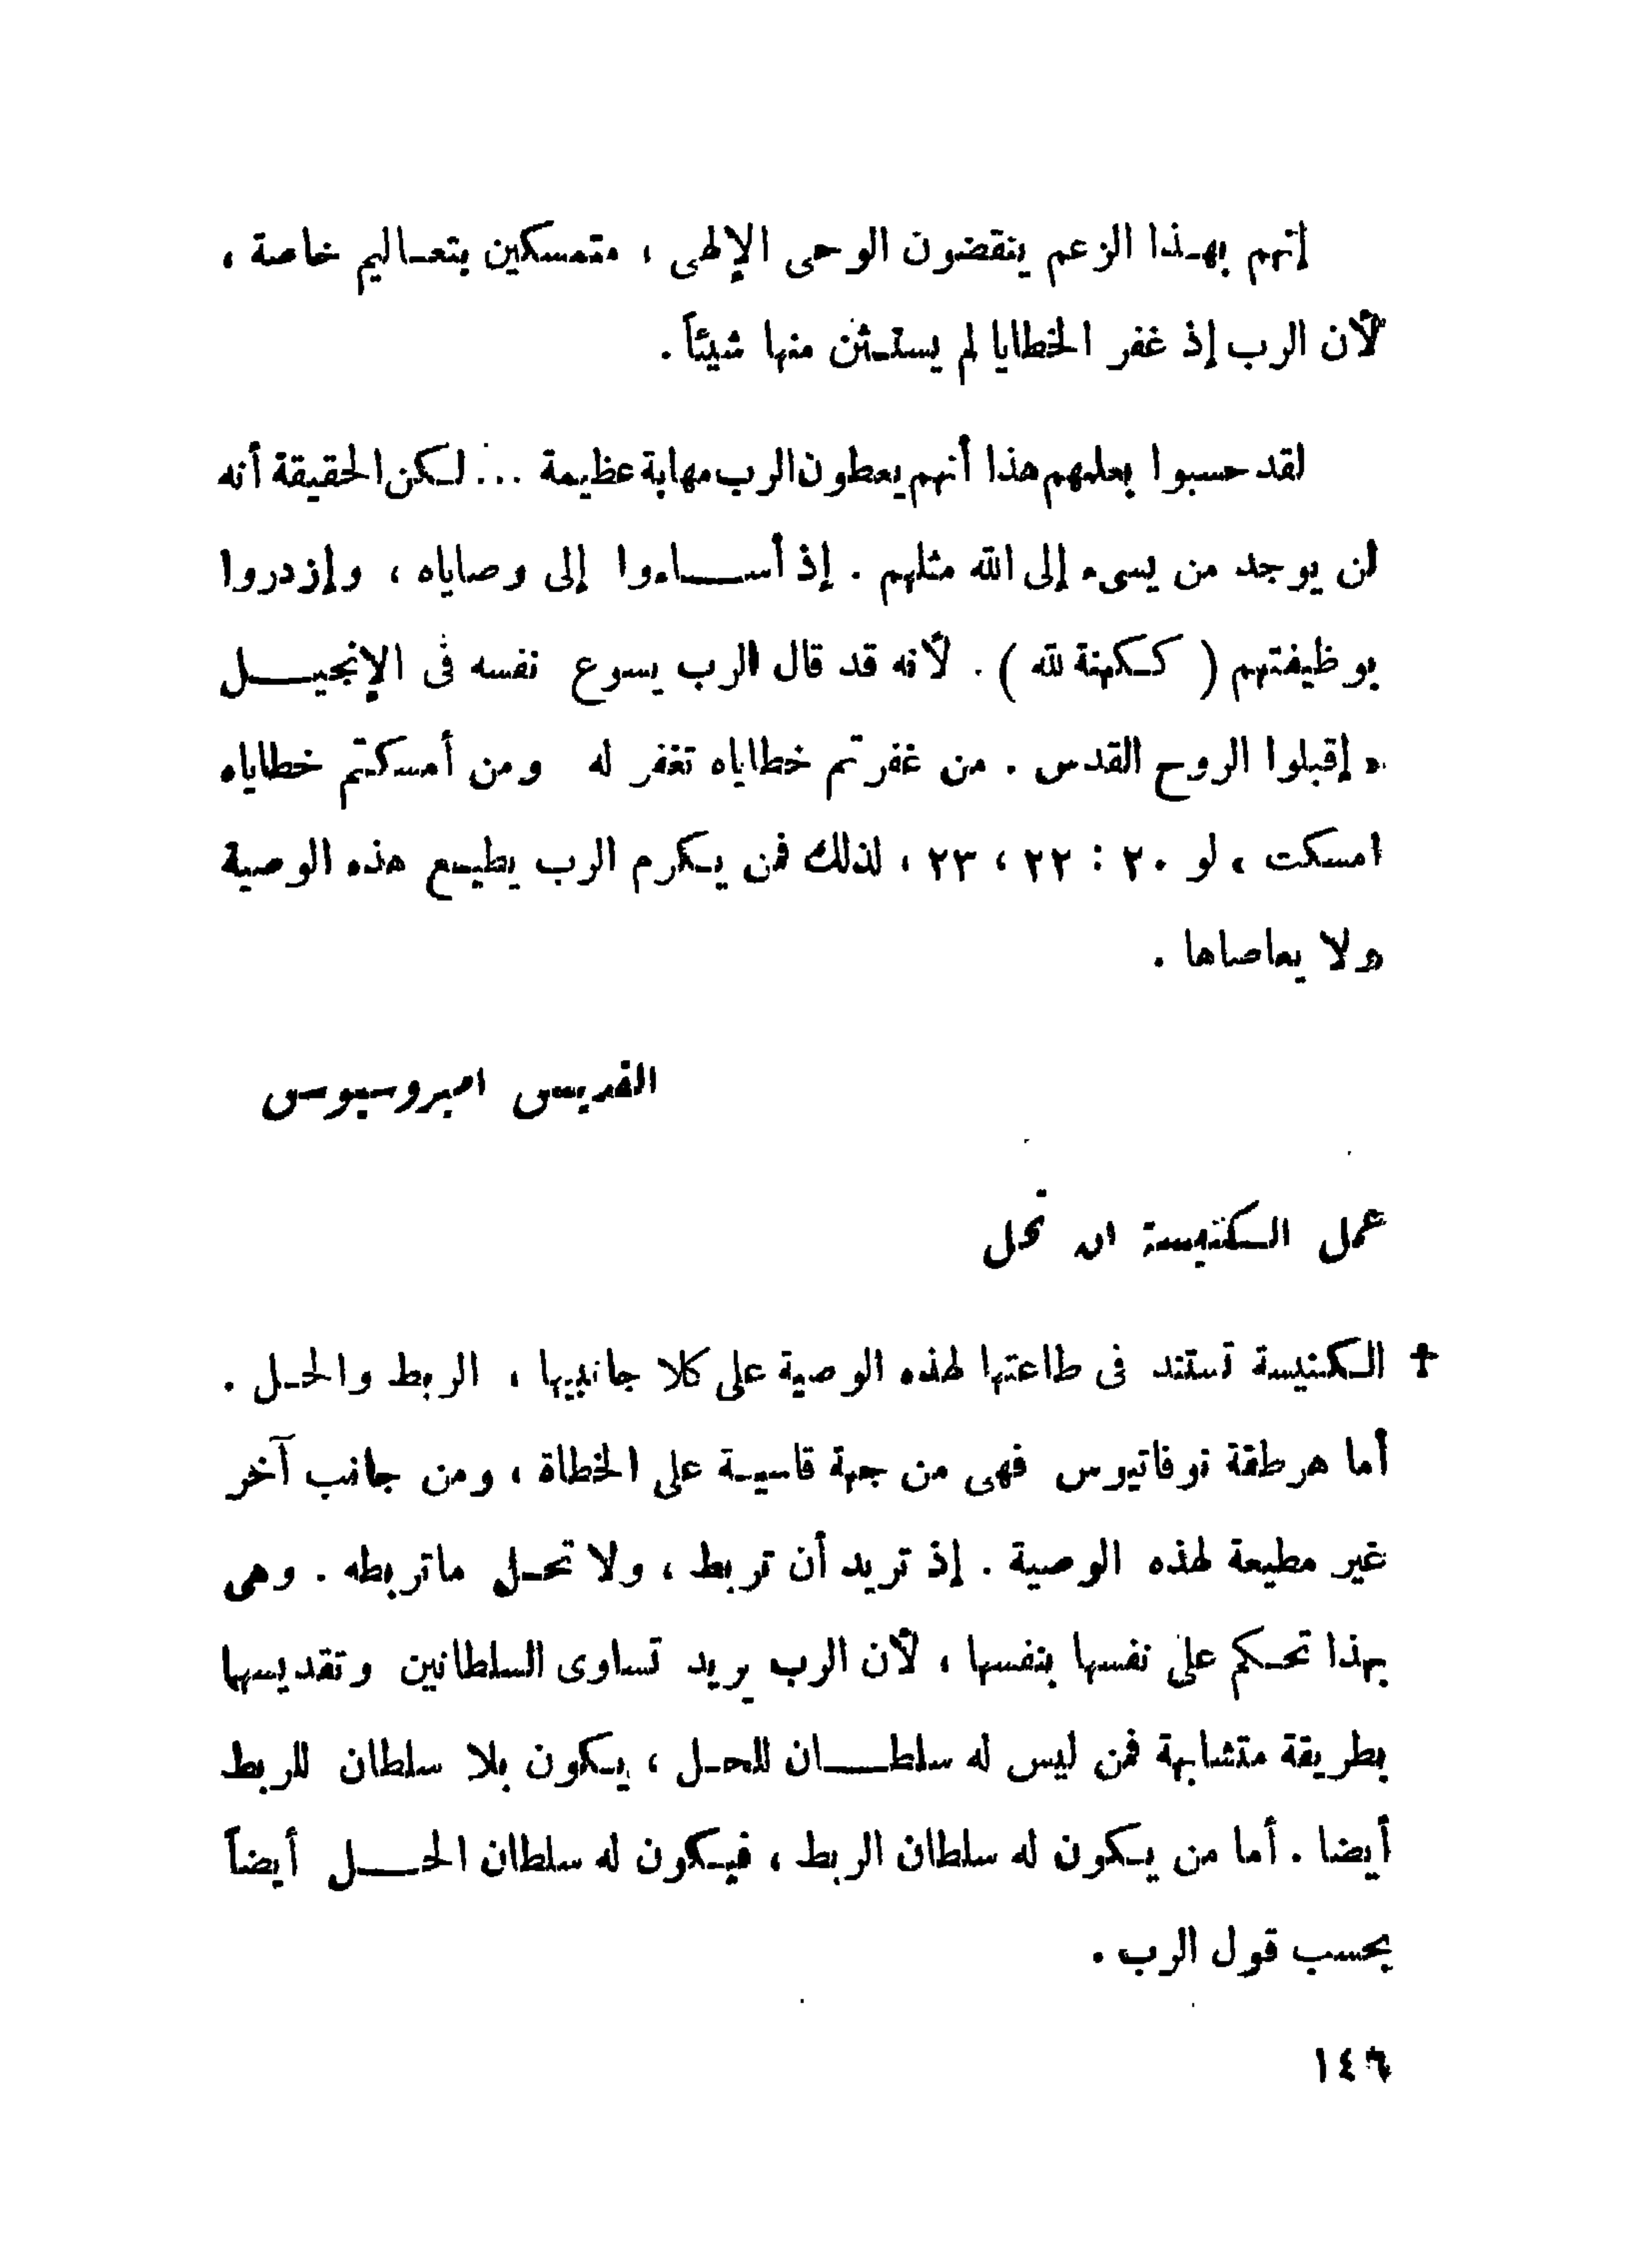 إنهم بهذا الزعم ينقضون الوحى الإلهى ، متمسكين بتعاليم خاصة ،
لأن الرب إذ غفر الخطايا لم يستثن منها شيئاً .
لقد حسبوا بعلمهم هذا أنهم يعطون الرب مهابة عظيمة ... لكن الحقيقة أنه
لن يوجد من يسىء إلى الله مثلهم . إذ أساءوا إلى وصاياه ، وإزدروا
بوظيفتهم ( ككهنة لله ) . لأنه قد قال الرب يسوع نفسه فى الإنجيل
« إقبلوا الروح القدس . من غفرتم خطاياه تغفر له ومن أمسكتم خطاياه
امسكت » لو ٢٠ : ٢٢ ، ٢٣ ، لذلك فمن يكرم الرب يطيع هذه الوصية
ولا يعاصاها .
القديس امبروسيوس
عمل الكنيسة ان تحل
✝ الكنيسة تستند فى طاعتها لهذه الوصية على كلا جانبيها ، الربط والحل .
أما هرطقة نوفاتيوس فهى من جهة قاسية على الخطاة ، ومن جانب آخر
غير مطيعة لهذه الوصية . إذ تريد أن تربط ، ولا تحل ماتربطه . وهى
بهذا تحكم على نفسها بنفسها ، لأن الرب يريد تساوى السلطانين وتقديسها
بطريقة متشابهة فمن ليس له سلطان للحل ، يكون بلا سلطان للربط
أيضا . أما من يكون له سلطان الربط ، فيكون له سلطان الحل أيضاً
بحسب قول الرب .
١٤٦